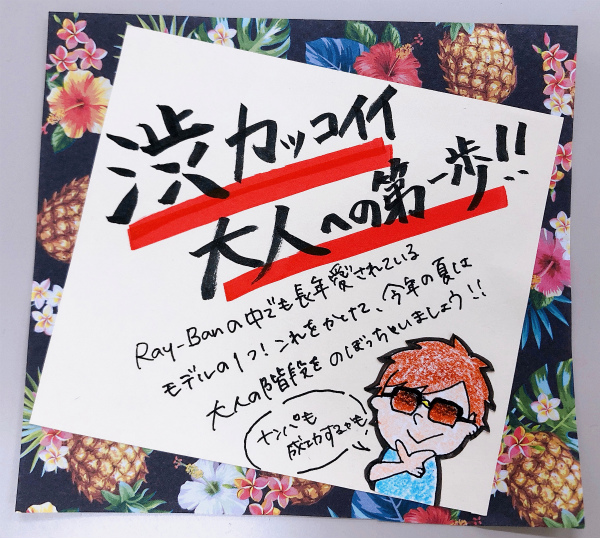 渋カッコイイ
大人への第一歩!!
Ray-Banの中でも長年愛されている
モデルの1つ!これをかけて、今年の夏は
大人の階段をのぼっちゃいましょう!!
ナンパも
成功するかも